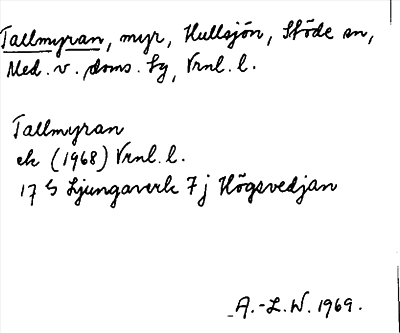 Tallmyran, myr, Hullsjön, Stöde sn,
Med. v. doms. tg, Vrnl. l.
Tallmyran
ek (1968) Vrnl. l.
17 G Ljungaverk 7 j Högsvedjan
A.-L.W. 1969.